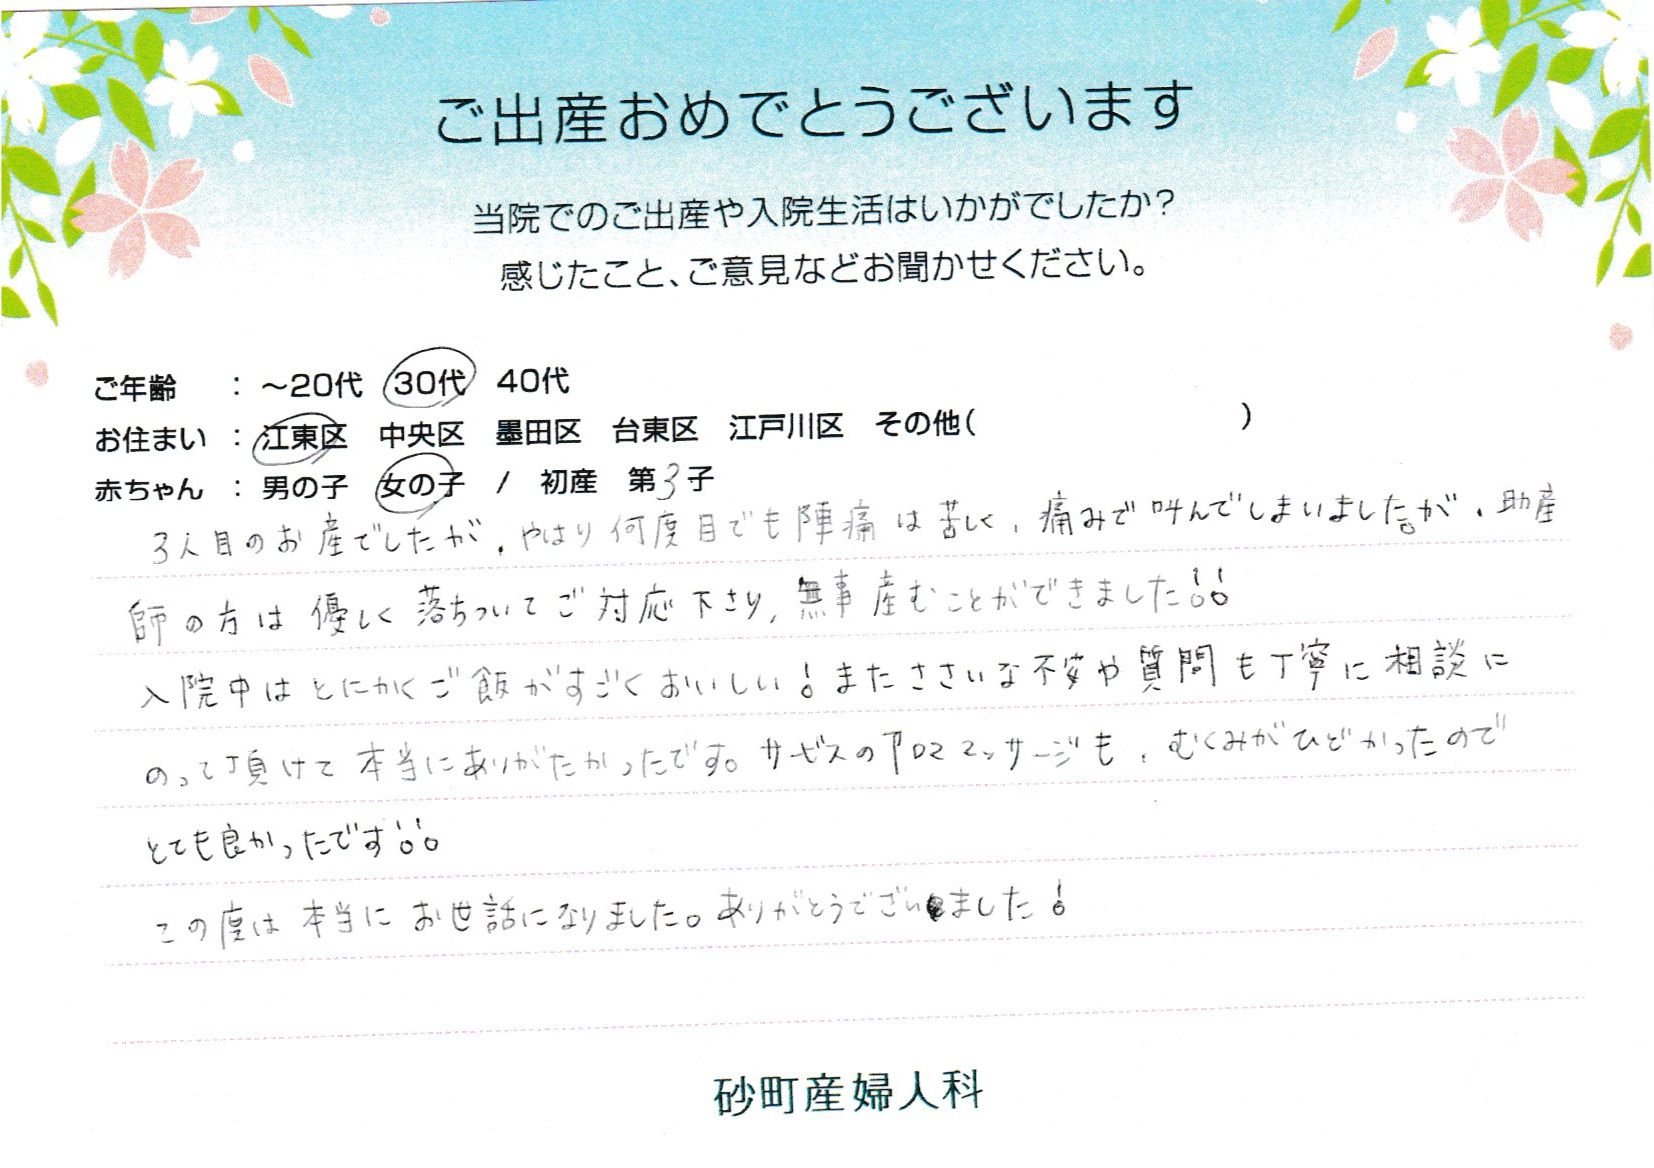 ご出産おめでとうございます
当院でのご出産や入院生活はいかがでしたか?
感じたこと、ご意見などお聞かせください。
ご年齢 : ～20代 30代 40代
お住まい : 江東区 中央区 墨田区 台東区 江戸川区 その他( )
赤ちゃん : 男の子 女の子 / 初産 第3子
3人目のお産でしたが、やはり何度目でも陣痛は苦しく、痛みで叫んでしまいました。が、助産
師の方は優しく落ちついてご対応下さり、無事産むことができました!!
入院中はとにかくご飯がすごくおいしい!またささいな不安や質問も丁寧に相談に
のって頂けて本当にありがたかったです。サービスのアロママッサージも、むくみがひどかったので
とても良かったです!!
この度は本当にお世話になりました。ありがとうございました!
砂町産婦人科